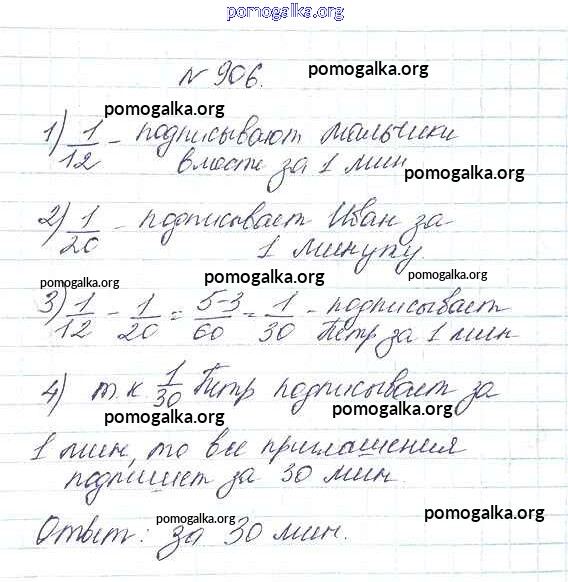 pomogalka.org
N 906. pomogalka.org
pomogalka.org
1) 1/12 - подписывают мальчики
вместе за 1 мин
pomogalka.org
2) 1/20 - подписывает Иван за
1 минуту.
pomogalka.org pomogalka.org pomogalka.org
3) 1/12 - 1/20 = 5-3/60 = 1/30 - подписывает
Петр за 1 мин
pomogalka.org pomogalka.org
4) т.к. 1/30 Петр подписывает за
pomogalka.org pomogalka.org
1 мин, то все приглашения
подпишет за 30 мин.
pomogalka.org pomogalka.org
Ответ: за 30 мин.